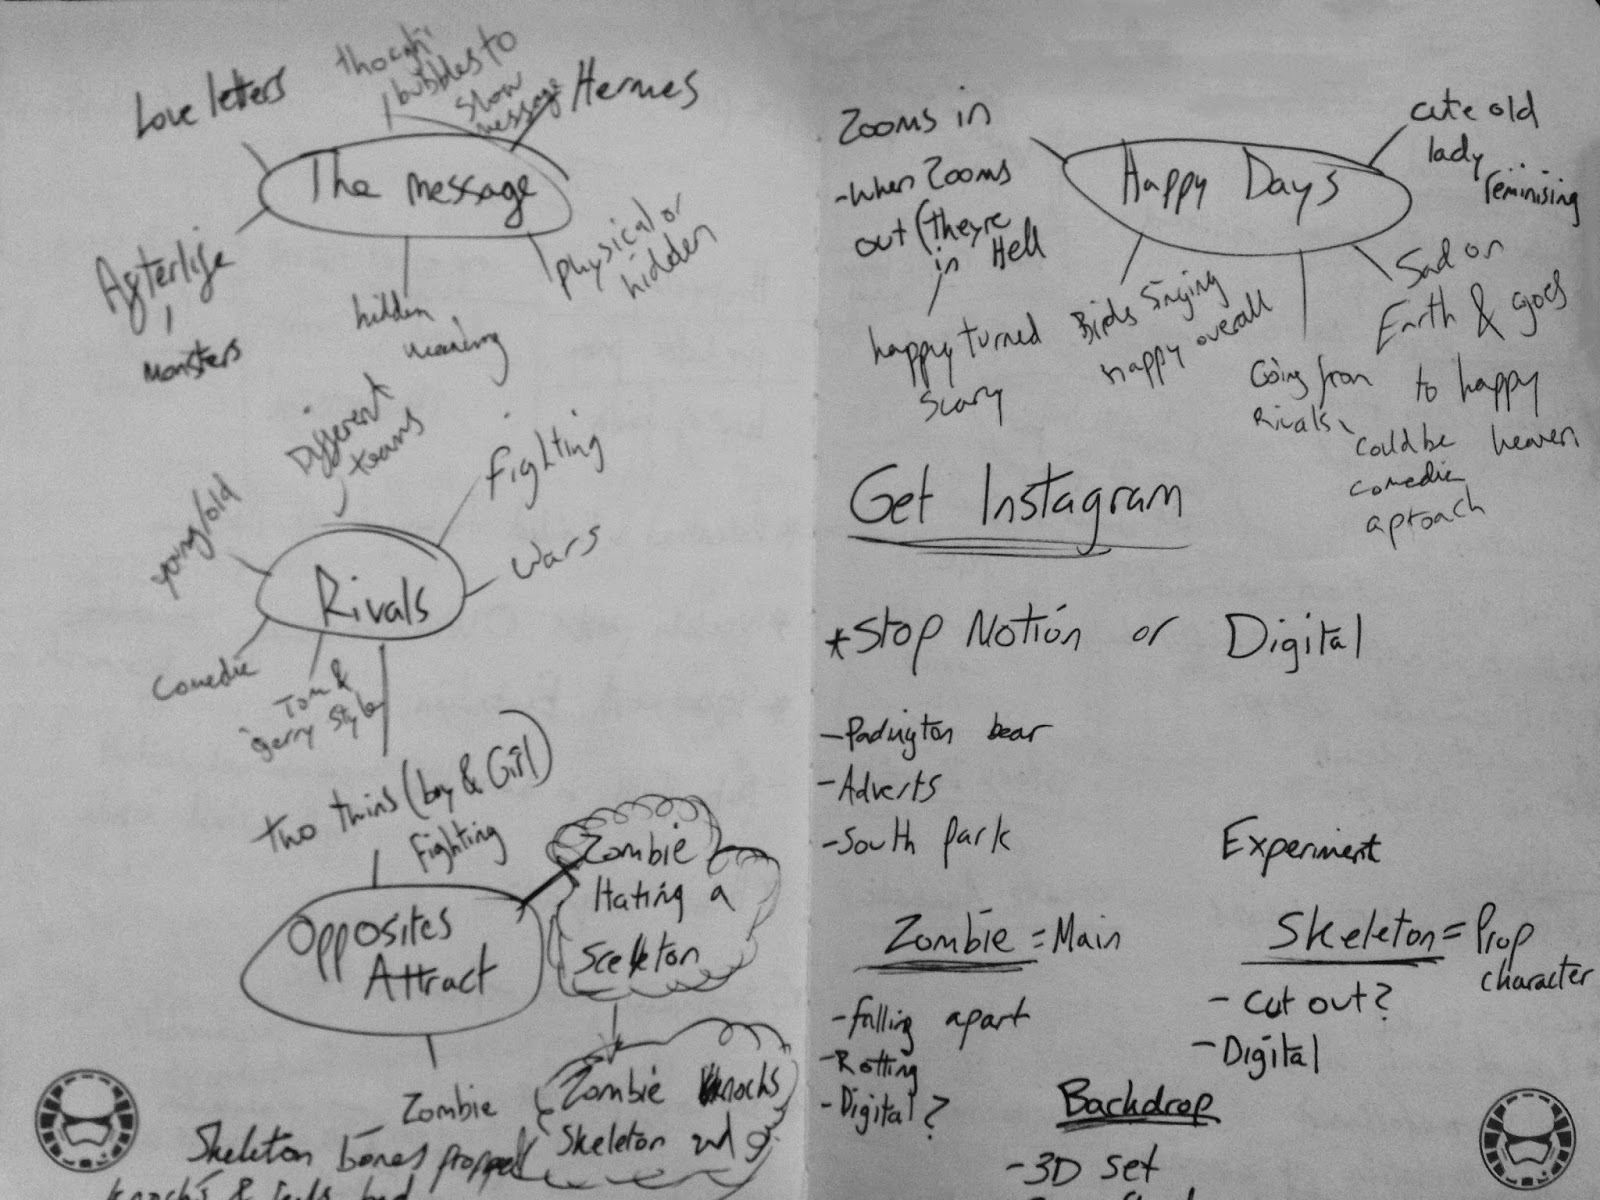 Love letters
bubbles to
show
message
Hermes
The message
Afterlife
Monsters
hidden
meaning
physical or
hidden
Different
teams
Fighting
young/old
wars
Rivals
Comedic
Tom &
gerry style
two twins (boy & Girl)
Fighting
Opposites
Attract
Zombie
Hating a
Sceleton
Zombie knocks
Skeleton
Zombie
Skeleton bones
knocks & feels bad
Zooms in
-when Zooms
out (they're
in Hell
happy turned
scary
Happy Days
cute old
lady
reminising
Birds Singing
happy overall
Going from
Rivals
Sad on
Earth & goes
to happy
heaven
could be
comedic
aproach
Get Instagram
*Stop Motion or Digital
-Padington bear
-Adverts
-South park
Experiment
Zombie = Main
-falling apart
-Rotting
-Digital?
Skeleton = Prop
character
-Cut out?
-Digital
Backdrop
-3D set